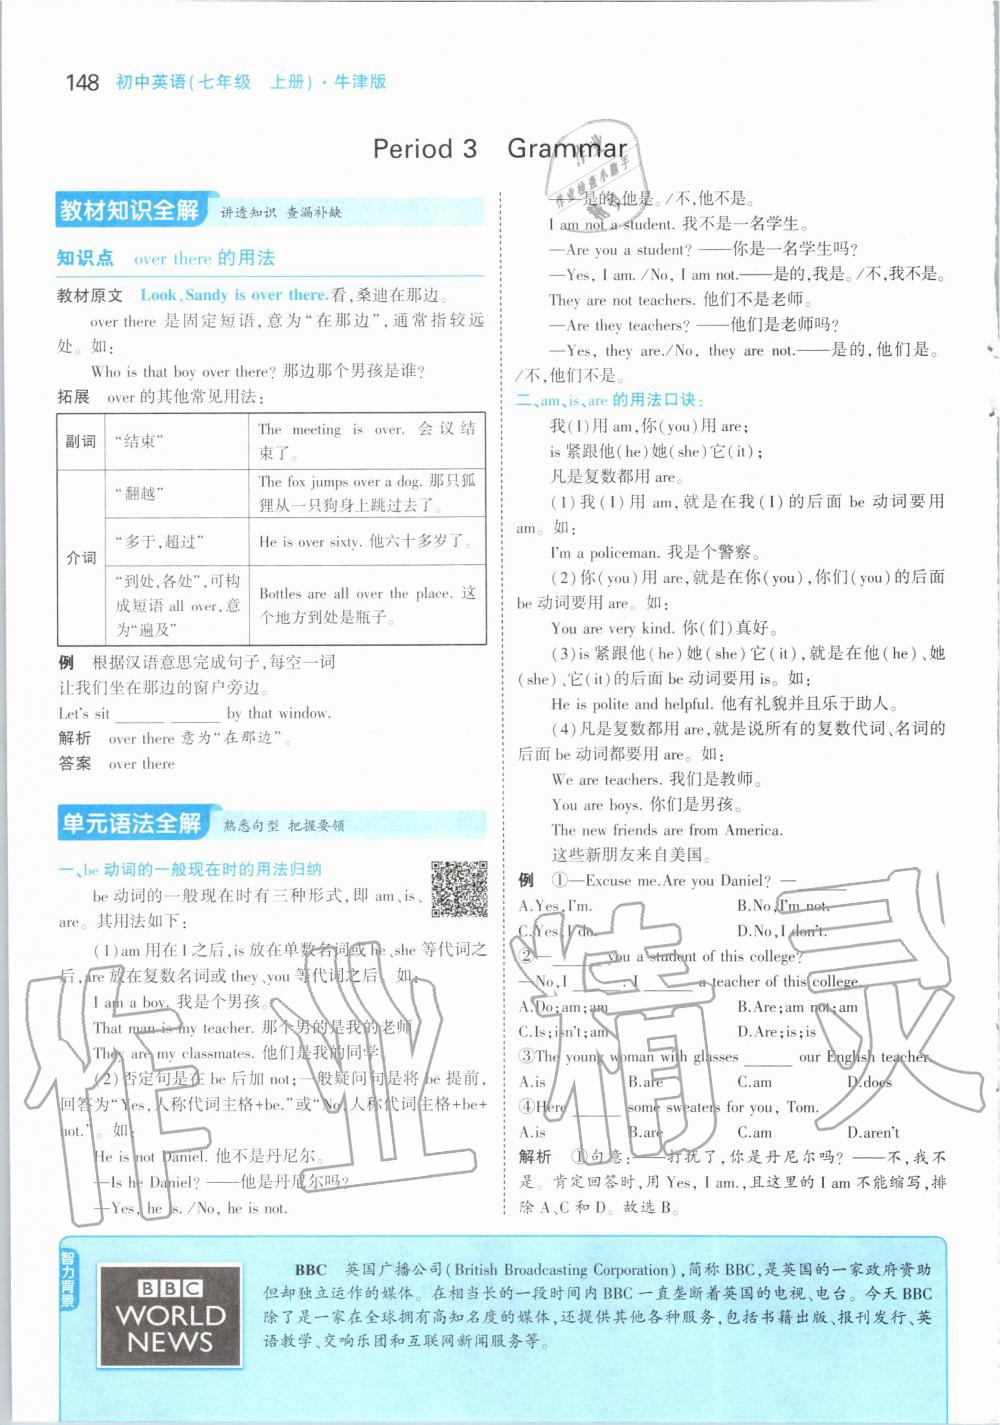 148 初中英语(七年级 上册)·牛津版
Period 3 Grammar
教材知识全解 讲透知识 查漏补缺
知识点 over there 的用法
教材原文 Look、Sandy is over there.看,桑迪在那边。
over there 是固定短语,意为“在那边”,通常指较远
处。如:
Who is that boy over there? 那边那个男孩是谁?
拓展 over的其他常见用法:
副词 “结束” The meeting is over. 会议结
束了。
介词 “翻越” The fox jumps over a dog. 那只狐
狸从一只狗身上跳过去了。
“多于,超过” He is over sixty. 他六十多岁了。
“到处,各处”,可构
成短语 all over,意
为“遍及” Bottles are all over the place. 这
个地方到处是瓶子。
例 根据汉语意思完成句子,每空一词
让我们坐在那边的窗户旁边。
Let's sit ______ ______ by that window.
解析 over there 意为“在那边”。
答案 over there
单元语法全解 熟悉句型 把握要领
一、be 动词的一般现在时的用法归纳
be 动词的一般现在时有三种形式,即 am、is、
are。其用法如下:
(1)am 用在 I 之后,is 放在单数名词或 he、she 等代词之
后,are 放在复数名词或 they、you 等代词之后。如:
I am a boy. 我是个男孩。
That man is my teacher. 那个男的是我的老师。
They are my classmates. 他们是我的同学。
(2)否定句是在 be 后加 not;一般疑问句是将 be 提前,
回答为“Yes,人称代词主格+be.”或“No,人称代词主格+be+
not.”。如:
He is not Daniel. 他不是丹尼尔。
—Is he Daniel? ——他是丹尼尔吗?
—Yes, he is. /No, he is not.
——是的,他是。/不,他不是。
I am not a student. 我不是一名学生。
—Are you a student? ——你是一名学生吗?
—Yes, I am. /No, I am not.——是的,我是。/不,我不是。
They are not teachers. 他们不是老师。
—Are they teachers? ——他们是老师吗?
—Yes, they are./No, they are not.——是的,他们是。
/不,他们不是。
二、am、is、are 的用法口诀:
我(I)用 am,你(you)用 are;
is 紧跟他(he)她(she)它(it);
凡是复数都用 are。
(1)我(I)用 am,就是在我(I)的后面 be 动词要用
am。如:
I'm a policeman. 我是个警察。
(2)你(you)用 are,就是在你(you)、你们(you)的后面
be 动词要用 are。如:
You are very kind. 你(们)真好。
(3)is 紧跟他(he)她(she)它(it),就是在他(he)、她
(she)、它(it)的后面 be 动词要用 is。如:
He is polite and helpful. 他有礼貌并且乐于助人。
(4)凡是复数都用 are,就是说所有的复数代词、名词的
后面 be 动词都要用 are。如:
We are teachers. 我们是教师。
You are boys. 你们是男孩。
The new friends are from America.
这些新朋友来自美国。
例 ①—Excuse me. Are you Daniel? —______
A.Yes,I'm. B.No,I'm not.
C.Yes,I do. D.No,I don't.
②—______ you a student of this college?
—No,I ______. I ______ a teacher of this college.
A.Do;am;am B.Are;am not;am
C.Is;isn't;am D.Are;is;is
③The young woman with glasses ______ our English teacher.
A.is B.are C.am D.does
④Here ______ some sweaters for you, Tom.
A.is B.are C.am D.aren't
解析 ①句意:——打扰了,你是丹尼尔吗?——不,我不
是。肯定回答时,用 Yes, I am.,且这里的 I am 不能缩写,排
除 A、C 和 D。故选 B。
智力背景
BBC
WORLD
NEWS
BBC 英国广播公司(British Broadcasting Corporation),简称 BBC,是英国的一家政府资助
但却独立运作的媒体。在相当长的一段时间内 BBC 一直垄断着英国的电视、电台。今天 BBC
除了是一家在全球拥有高知名度的媒体,还提供其他各种服务,包括书籍出版、报刊发行、英
语教学、交响乐团和互联网新闻服务等。
作业精灵
作业
作业检查小助手